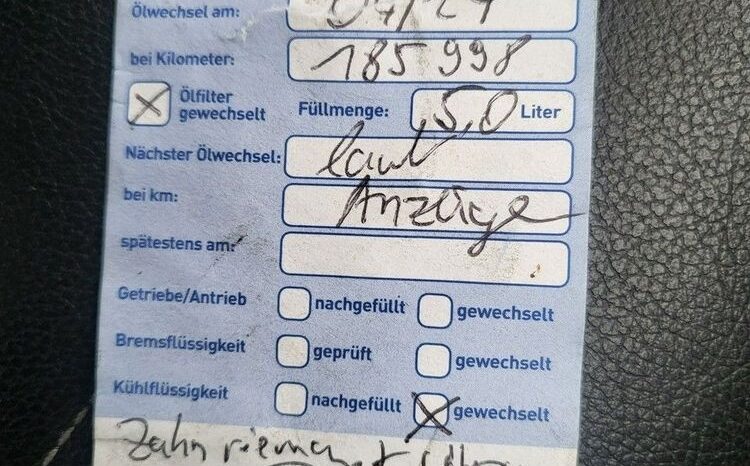 Ölwechsel am:
bei Kilometer: 185 998
Ölfilter gewechselt Füllmenge: 5,0 Liter
Nächster Ölwechsel: laut
bei km: Anzeige
spätestens am:
Getriebe/Antrieb nachgefüllt gewechselt
Bremsflüssigkeit geprüft gewechselt
Kühlflüssigkeit nachgefüllt gewechselt
Zahnriemen